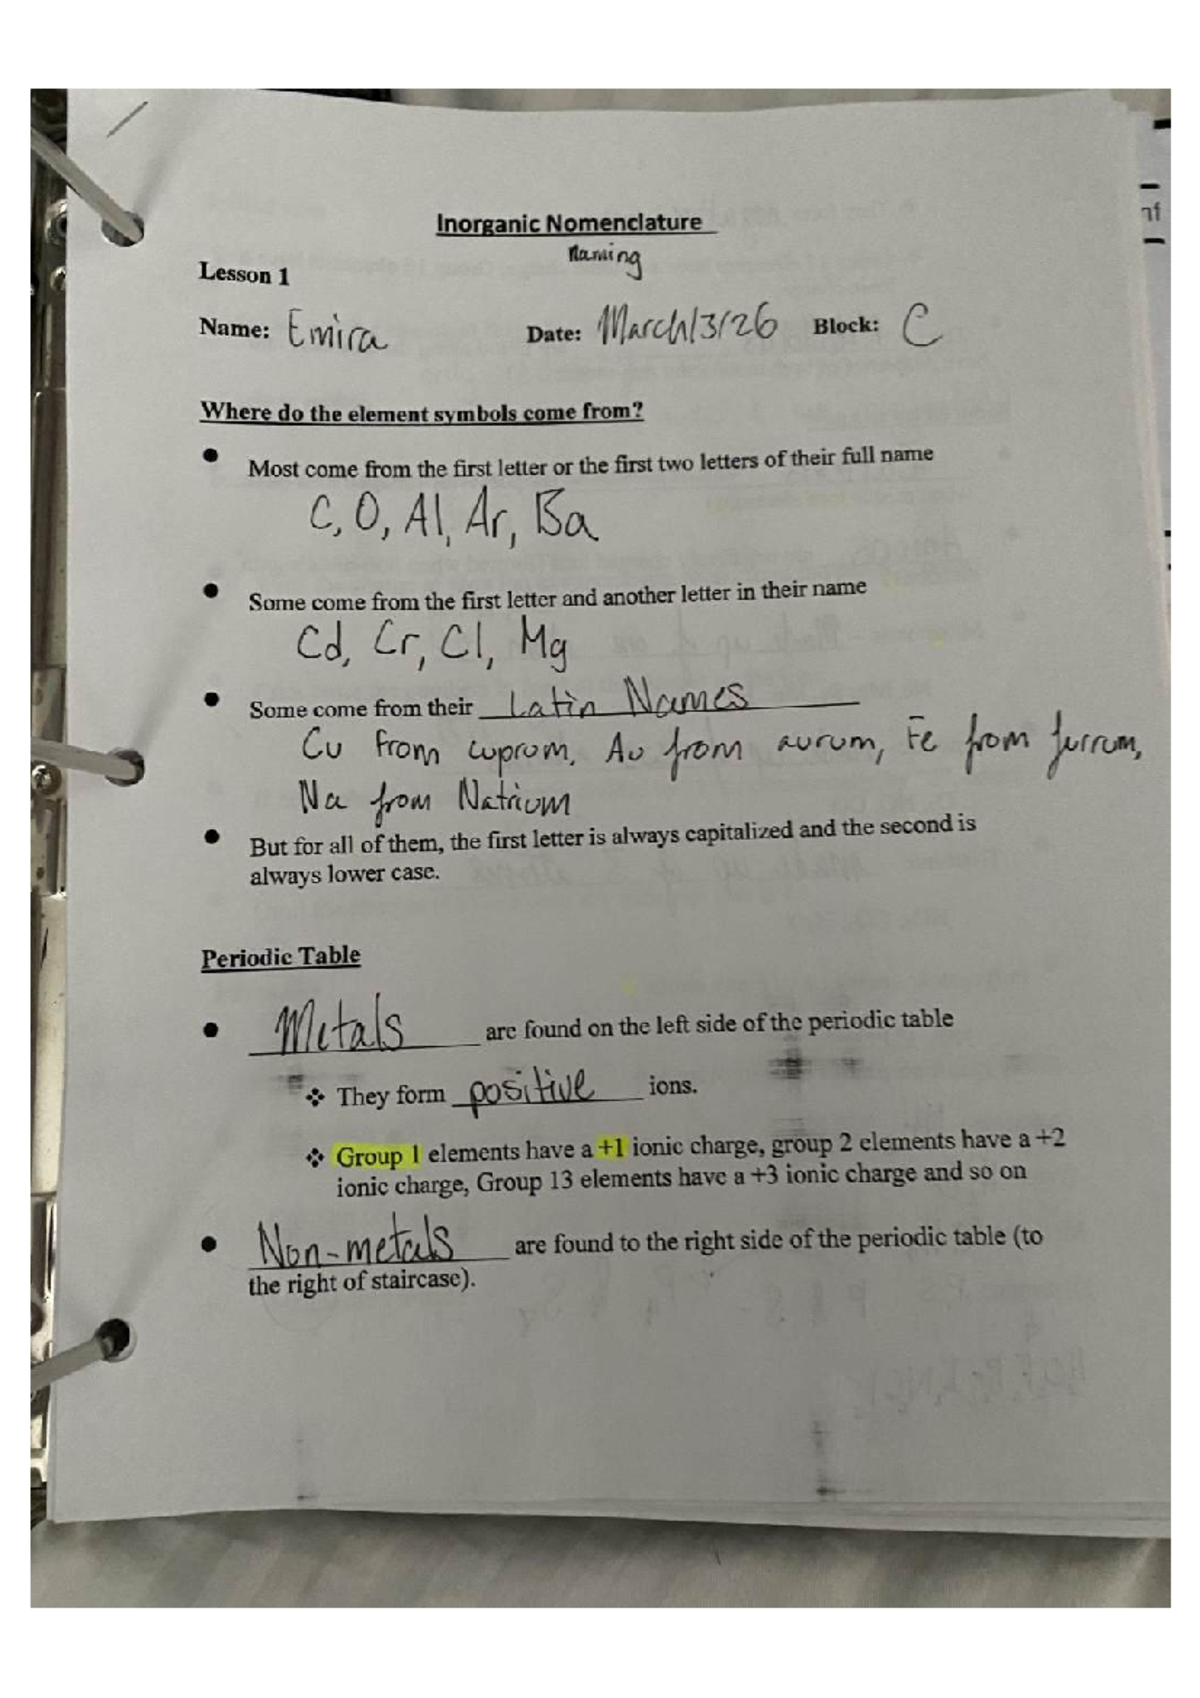 Inorganic Nomenclature
Naming
Lesson 1
Name: Emira Date: March/3/26 Block: C
Where do the element symbols come from?
● Most come from the first letter or the first two letters of their full name
C, O, Al, Ar, Ba
● Some come from the first letter and another letter in their name
Cd, Cr, Cl, Mg
● Some come from their Latin Names
Cu from cuprum, Au from aurum, Fe from furrum,
Na from Natrium
● But for all of them, the first letter is always capitalized and the second is
always lower case.
Periodic Table
● Metals are found on the left side of the periodic table
❖ They form positive ions.
❖ Group 1 elements have a +1 ionic charge, group 2 elements have a +2
ionic charge, Group 13 elements have a +3 ionic charge and so on
● Non-metals are found to the right side of the periodic table (to
the right of staircase).